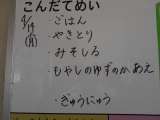 こんだてめい
4/14
(月)
・ごはん
・やきとり
・みそしる
・もやしのゆずのかあえ
・ぎゅうにゅう